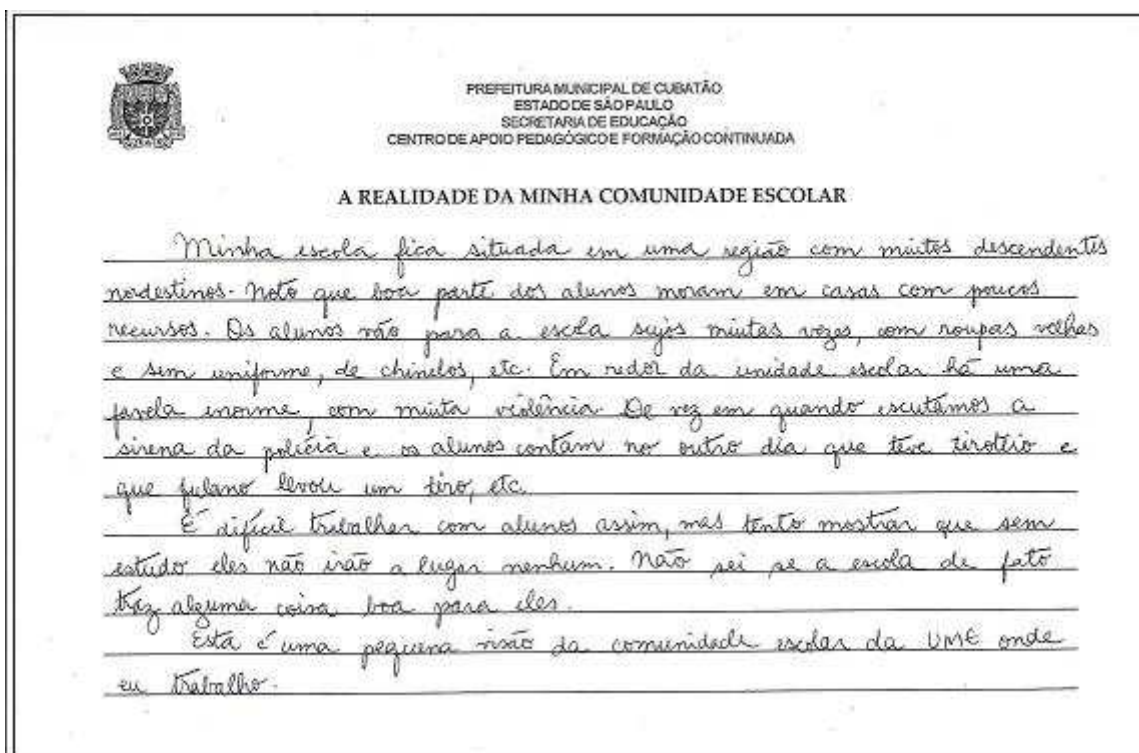 PREFEITURA MUNICIPAL DE CUBATÃO
ESTADO DE SÃO PAULO
SECRETARIA DE EDUCAÇÃO
CENTRO DE APOIO PEDAGÓGICO E FORMAÇÃO CONTINUADA
A REALIDADE DA MINHA COMUNIDADE ESCOLAR
Minha escola fica situada em uma região com muitos descendentes
nordestinos. Noto que boa parte dos alunos moram em casas com poucos
recursos. Os alunos vão para a escola sujos muitas vezes, com roupas velhas
e sem uniforme, de chinelos, etc. Em redor da unidade escolar há uma
favela enorme, com muita violência. De vez em quando escutamos a
sirena da polícia e os alunos contam no outro dia que teve tiroteio e
que fulano levou um tiro, etc.
É difícil trabalhar com alunos assim, mas tento mostrar que sem
estudo eles não irão a lugar nenhum. Não sei se a escola de fato
traz alguma coisa boa para eles.
Esta é uma pequena visão da comunidade escolar da UME onde
eu trabalho.